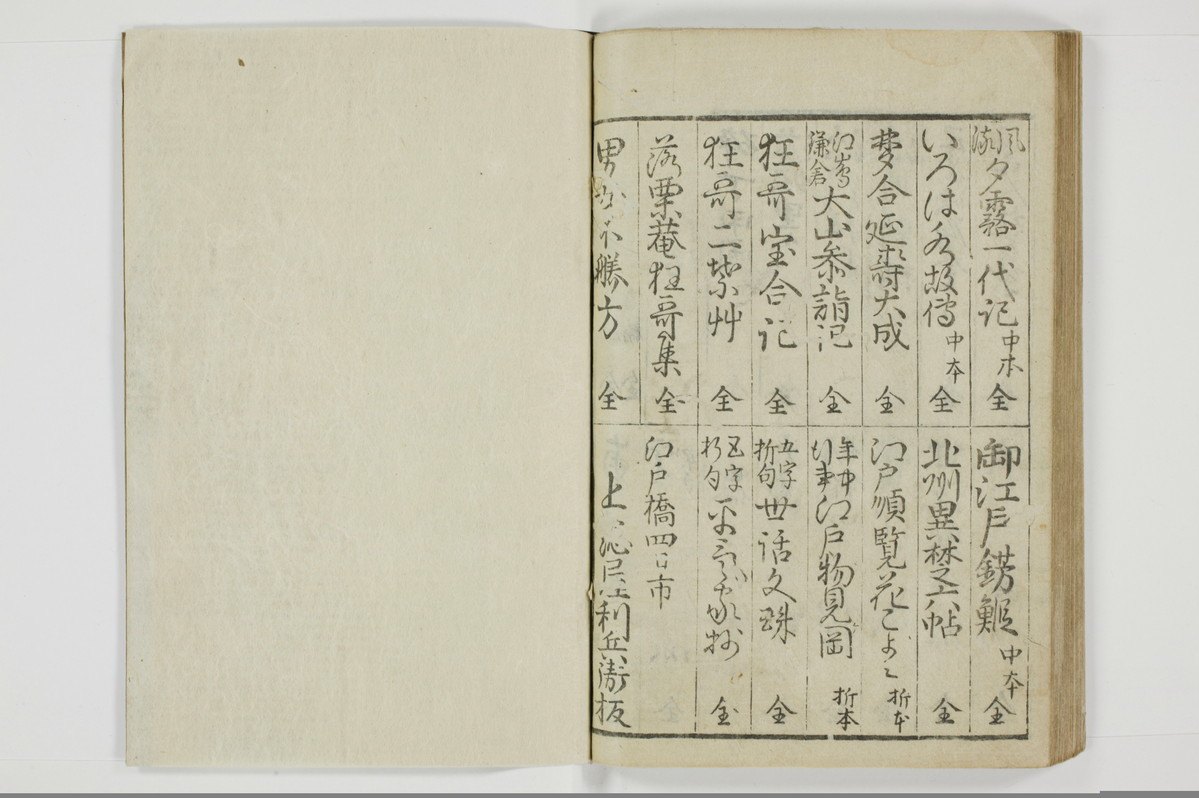 風流夕霧一代記 中本 全
いろは 故傳 中本 全
夢合延壽大成 全
江嶌鎌倉大山参詣記 全
狂哥宝合記 全
狂哥二紫艸 全
落栗菴狂哥集 全
男女不勝方 全
御江戸錺鰕 中本 全
北州異楚六帖 全
江戸順覧花ごよミ 折本
年中行事江戸物見岡 折本
五字折句世話文 全
五字折句 全
江戸橋四日市
上総屋利兵衛板